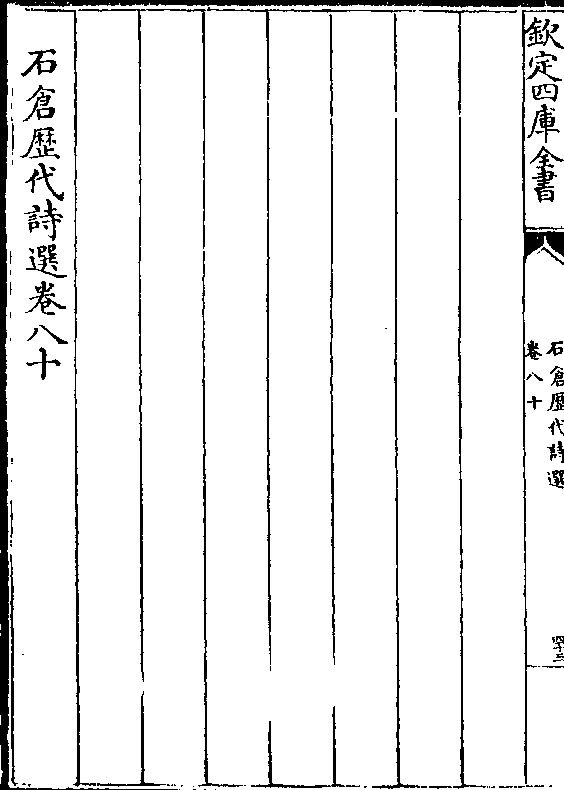 欽定四庫全書
石倉歴代詩選
卷八十
四十三
石倉歴代詩選卷八十